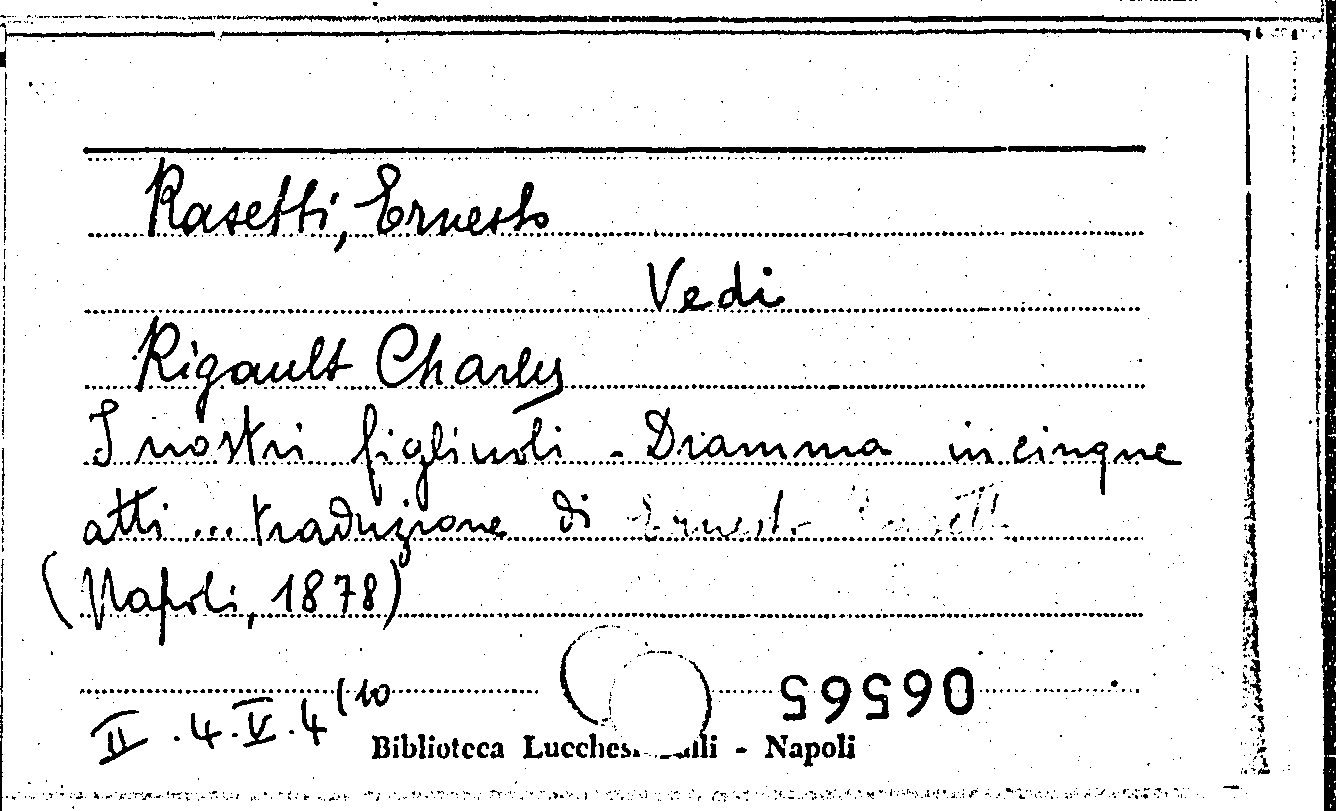 Rasetti, Ernesto
Vedi
Rigault Charley
I nostri figliuoli - Dramma in cinque
atti ... traduzione di Ernesto Rasetti
(Napoli, 1878)
II . 4 . V . 4 (10
06565
Biblioteca Lucchesi Palli - Napoli